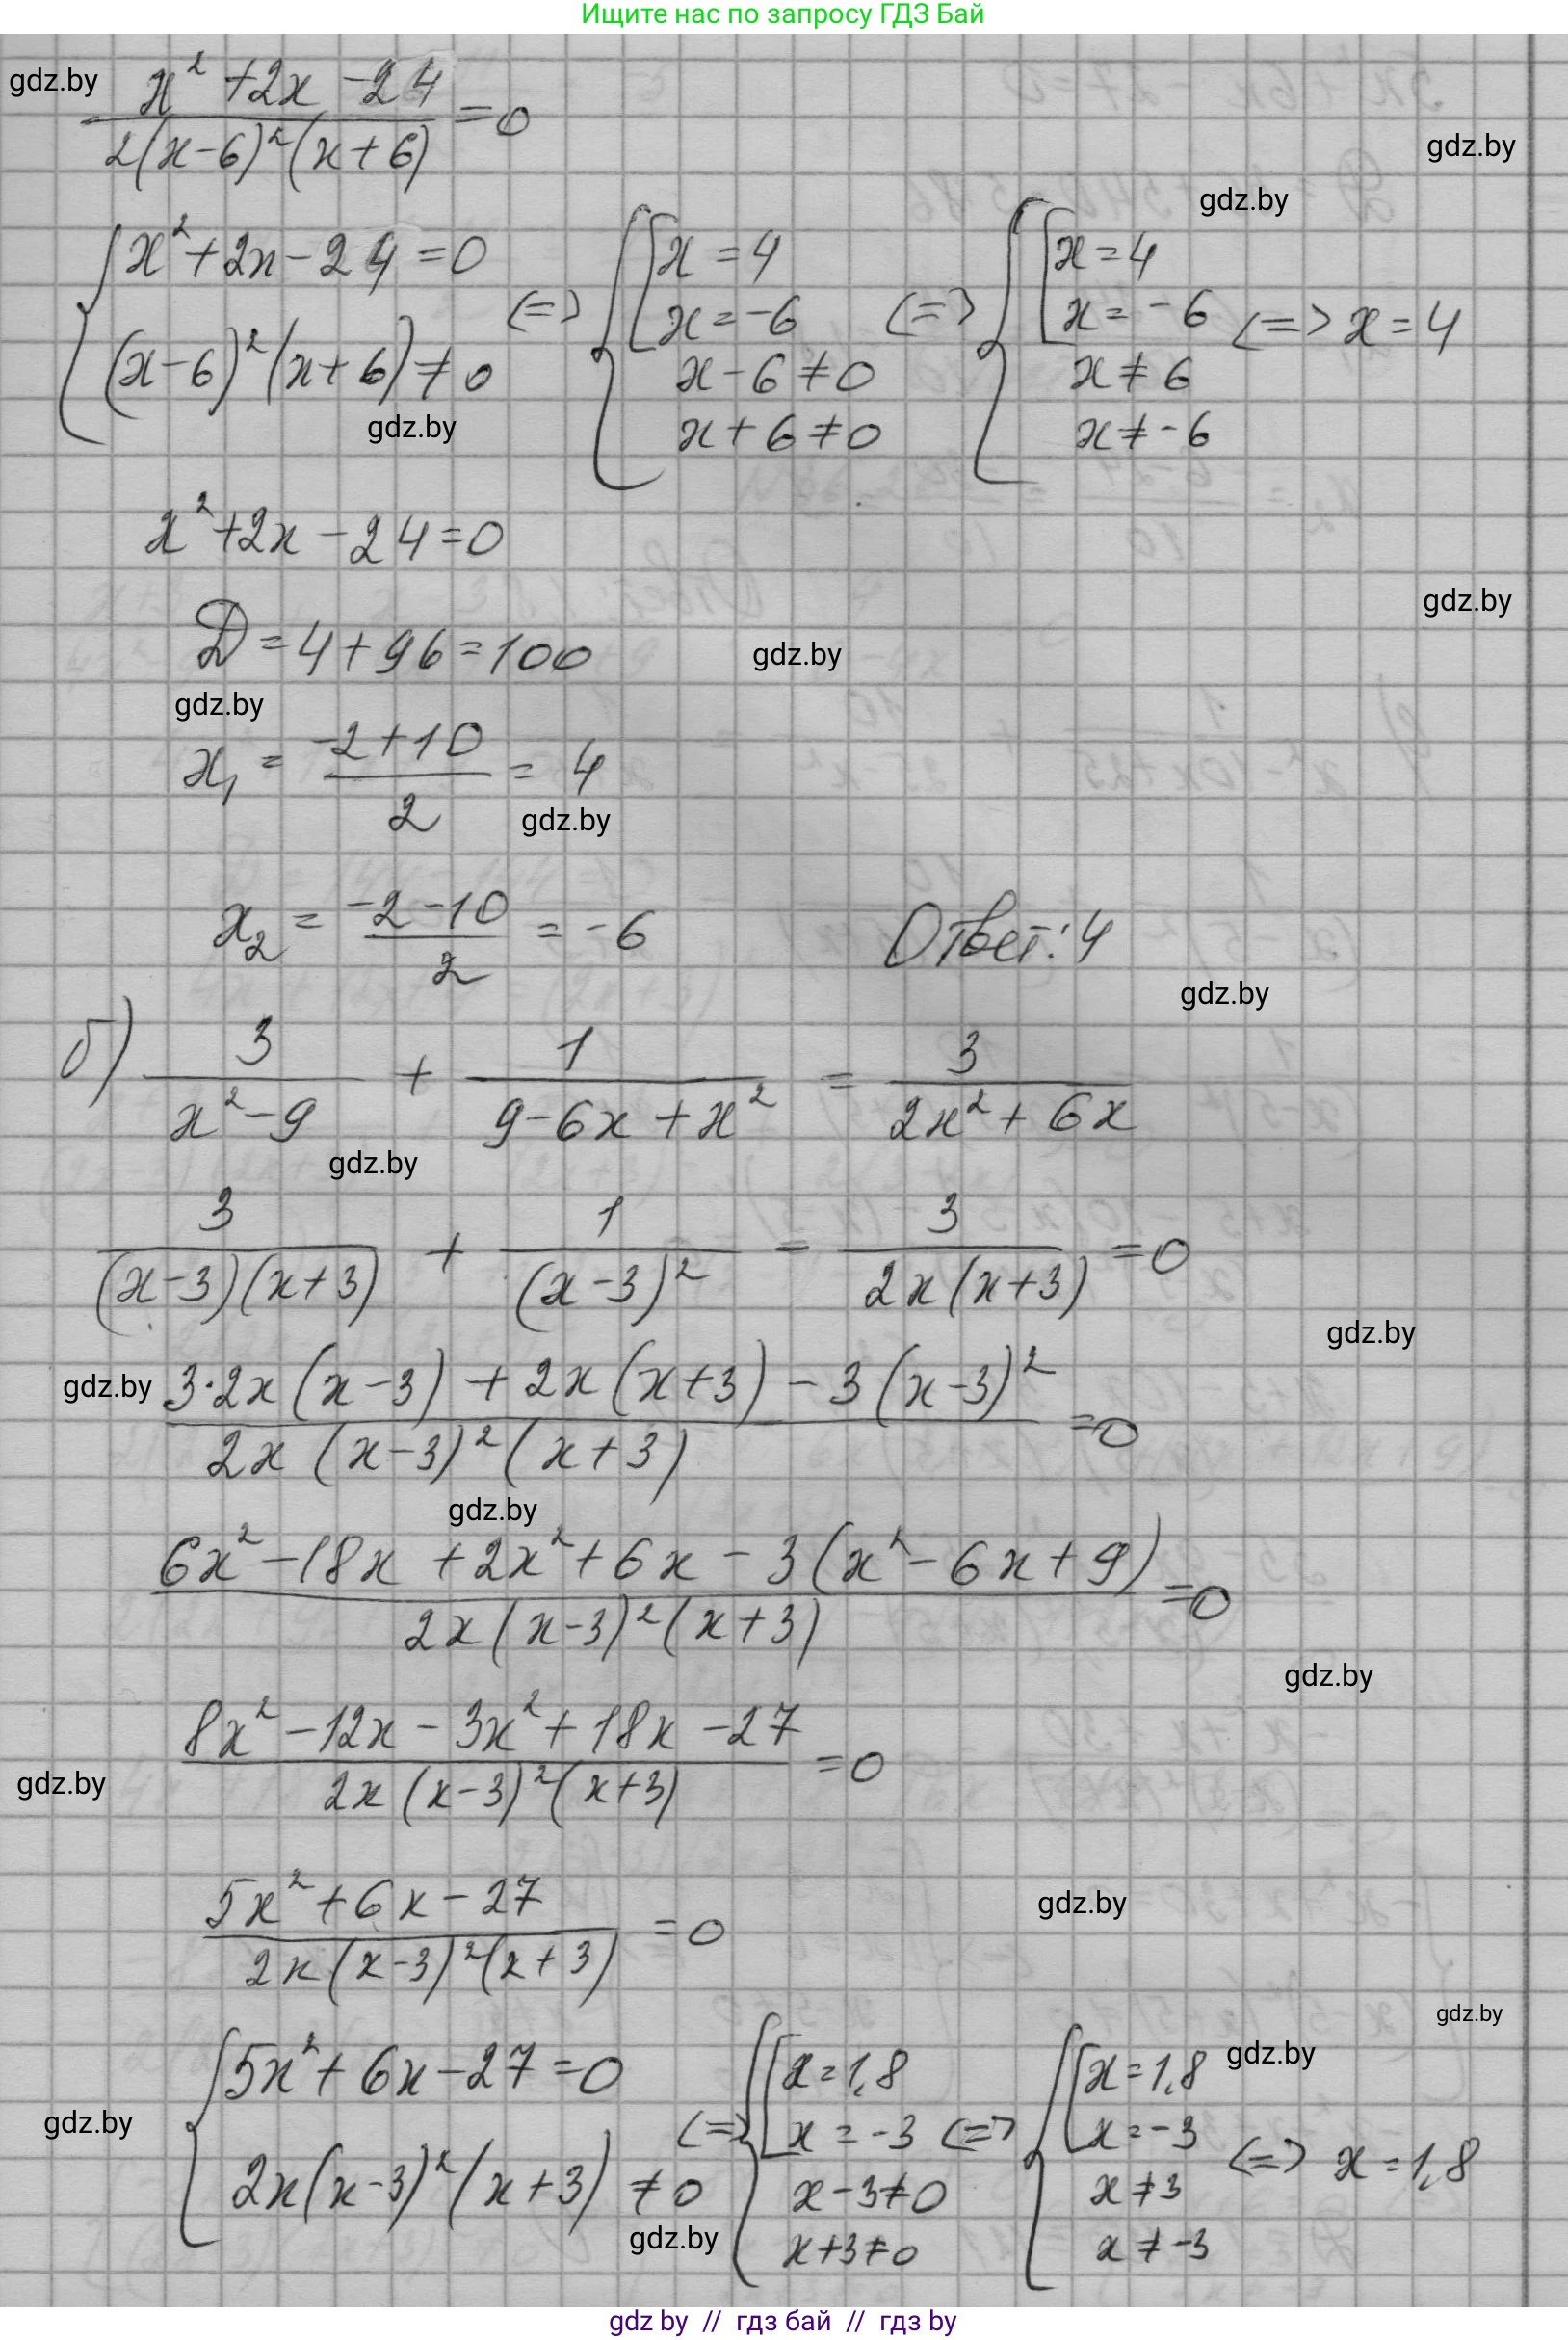 Ищите нас по запросу ГДЗ Бай
gdz.by
(x² + 2x - 24) / (2(x-6)²(x+6)) = 0
gdz.by
gdz.by
{ x² + 2x - 24 = 0 ; (x-6)²(x+6) ≠ 0 <=> { [ x = 4 ; x = -6 ; x - 6 ≠ 0 ; x + 6 ≠ 0 <=> { [ x = 4 ; x = -6 ; x ≠ 6 ; x ≠ -6 <=> x = 4
gdz.by
x² + 2x - 24 = 0
gdz.by
D = 4 + 96 = 100
gdz.by
gdz.by
x₁ = (-2 + 10) / 2 = 4
gdz.by
x₂ = (-2 - 10) / 2 = -6
Ответ: 4
gdz.by
б) 3 / (x² - 9) + 1 / (9 - 6x + x²) = 3 / (2x² + 6x)
gdz.by
3 / ((x-3)(x+3)) + 1 / (x-3)² - 3 / (2x(x+3)) = 0
gdz.by
gdz.by
(3·2x(x-3) + 2x(x+3) - 3(x-3)²) / (2x(x-3)²(x+3)) = 0
gdz.by
(6x² - 18x + 2x² + 6x - 3(x² - 6x + 9)) / (2x(x-3)²(x+3)) = 0
gdz.by
(8x² - 12x - 3x² + 18x - 27) / (2x(x-3)²(x+3)) = 0
gdz.by
(5x² + 6x - 27) / (2x(x-3)²(x+3)) = 0
gdz.by
gdz.by
gdz.by
{ 5x² + 6x - 27 = 0 ; 2x(x-3)²(x+3) ≠ 0 <=> { [ x = 1,8 ; x = -3 ; x - 3 ≠ 0 ; x + 3 ≠ 0 <=> { [ x = 1,8 ; x = -3 ; x ≠ 3 ; x ≠ -3 <=> x = 1,8
gdz.by
gdz.by
gdz by // гдз бай // гдз by